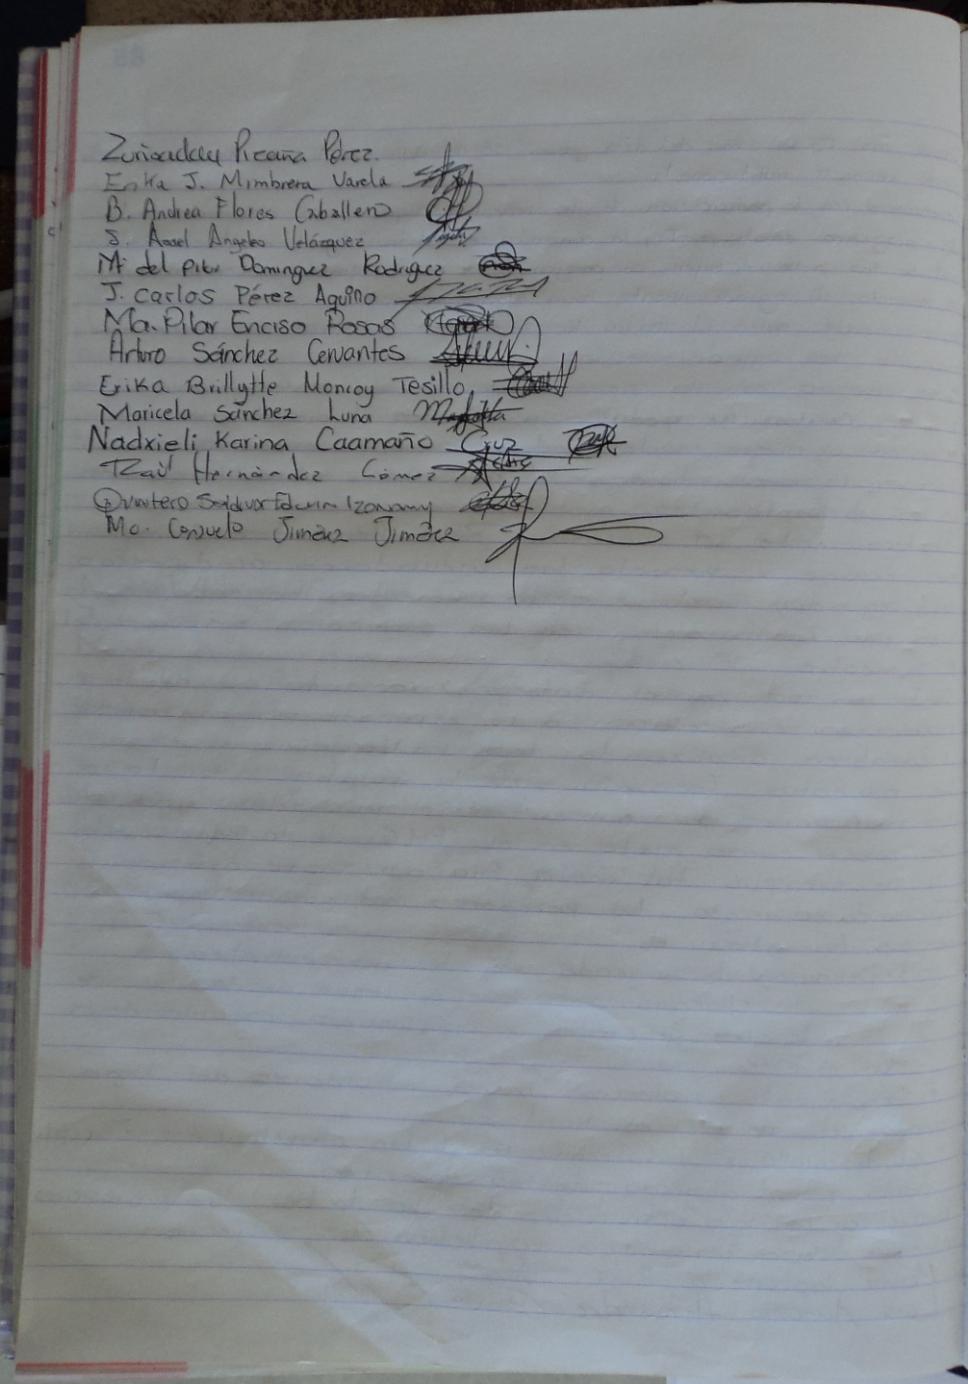 Pérez
Erika J. Mimbrera Varela
B. Andrea Flores Caballero
S. Angeles Velázquez
Ma del Pilar Dominguez Rodriguez
J. Carlos Pérez Aquino
Ma. Pilar Enciso Rosas
Arturo Sánchez Cervantes
Erika Brillytte Monroy Tesillo
Maricela Sánchez Luna
Nadxieli Karina Caamaño Cruz
Raúl Hernández Gómez
Quintero
Ma. Consuelo Jiménez Jiménez